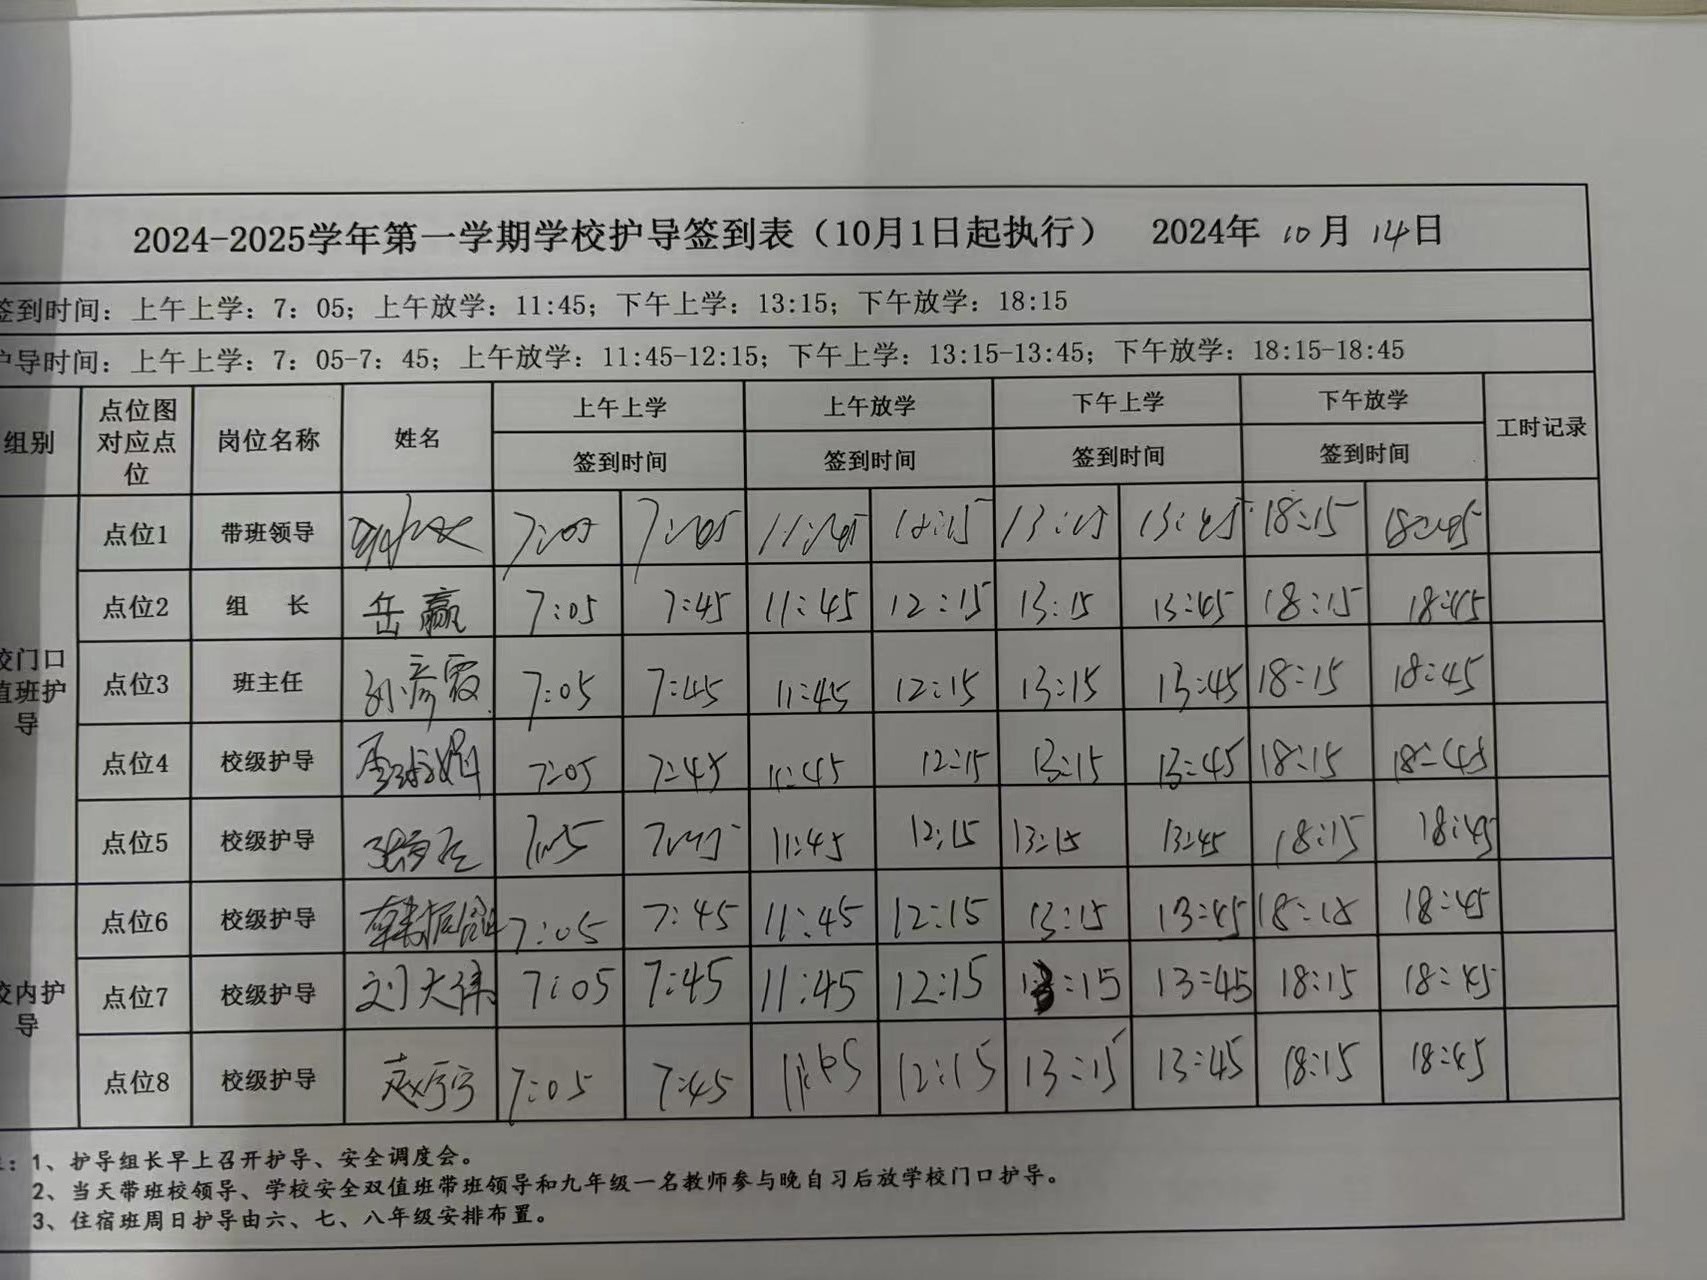 2024-2025学年第一学期学校护导签到表（10月1日起执行） 2024年 10月 14日
签到时间：上午上学：7：05；上午放学：11:45；下午上学：13:15；下午放学：18:15
护导时间：上午上学：7：05-7：45；上午放学：11:45-12:15；下午上学：13:15-13:45；下午放学：18:15-18:45
组别 点位图对应点位 岗位名称 姓名 上午上学 上午放学 下午上学 下午放学 工时记录
签到时间 签到时间 签到时间 签到时间
点位1 带班领导 7:05 11:45 12:15 13:15 13:45 18:15 18:45
点位2 组 长 岳赢 7:05 7:45 11:45 12:15 13:15 13:45 18:15 18:45
校门口值班护导
点位3 班主任 孙彦霞 7:05 7:45 11:45 12:15 13:15 13:45 18:15 18:45
点位4 校级护导 7:05 7:45 11:45 12:15 13:15 13:45 18:15 18:45
点位5 校级护导 7:05 11:45 12:15 13:15 13:45 18:15 18:45
点位6 校级护导 7:05 7:45 11:45 12:15 13:15 13:45 18:15 18:45
校内护导
点位7 校级护导 刘大伟 7:05 7:45 11:45 12:15 13:15 13:45 18:15 18:45
点位8 校级护导 赵宁宁 7:05 7:45 11:45 12:15 13:15 13:45 18:15 18:45
：1、护导组长早上召开护导、安全调度会。
2、当天带班校领导、学校安全双值班带班领导和九年级一名教师参与晚自习后放学校门口护导。
3、住宿班周日护导由六、七、八年级安排布置。